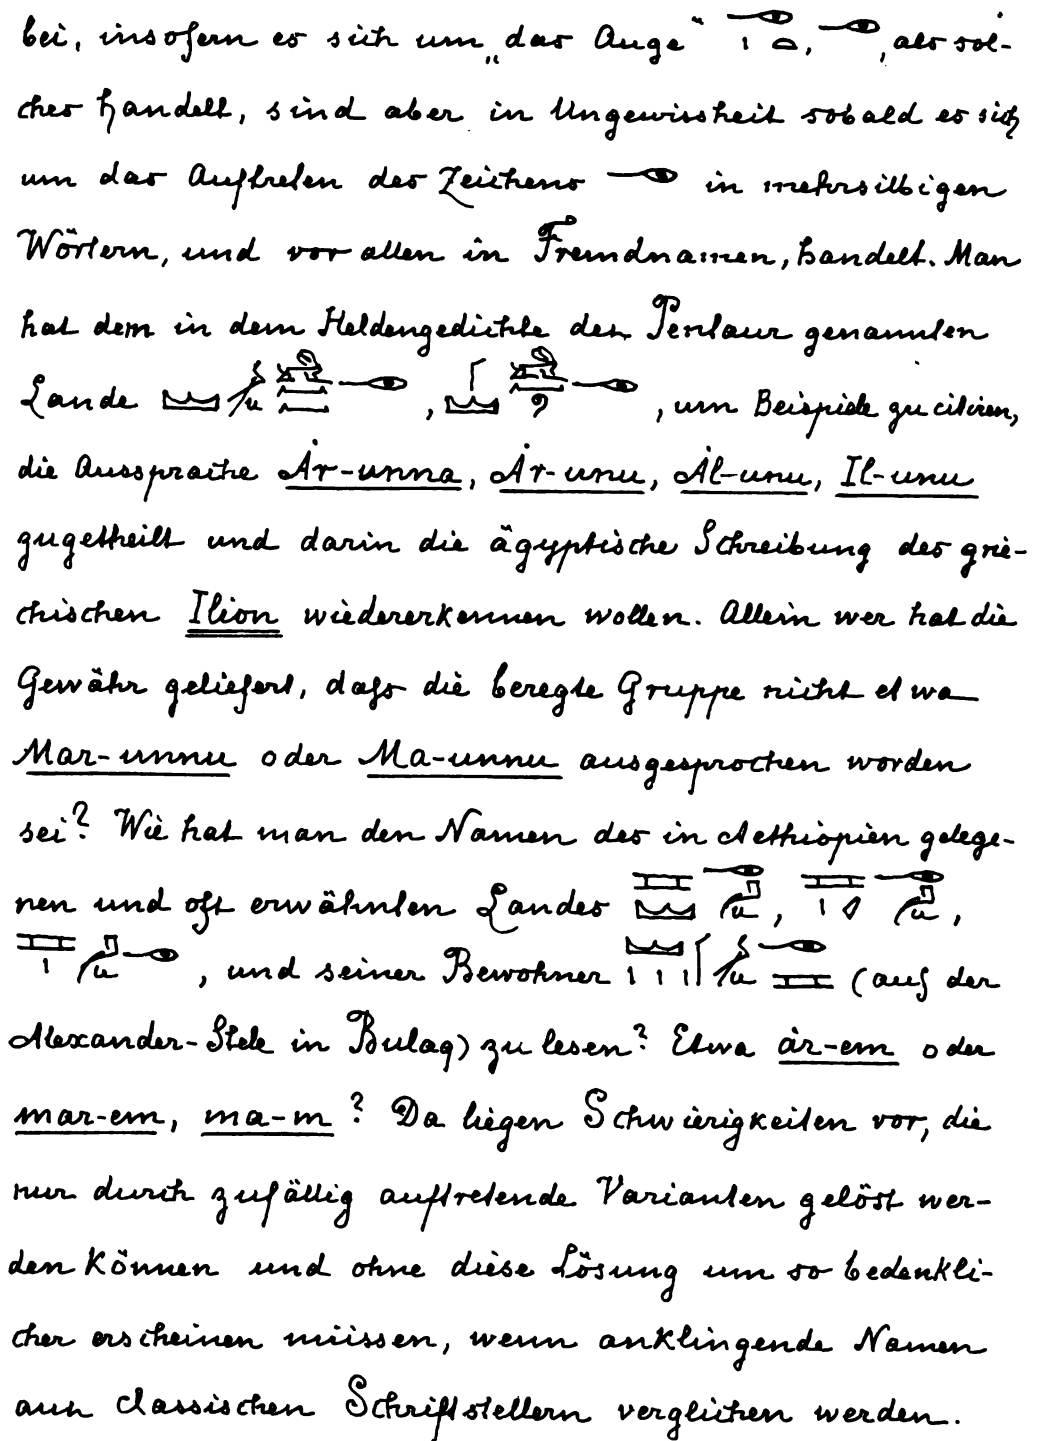 bei, insofern es sich um „das Auge“ , , als sol-
ches handelt, sind aber in Ungewissheit sobald es sich
um das Auftreten des Zeichens in mehrsilbigen
Wörtern, und vor allen in Fremdnamen, handelt. Man
hat dem in dem Heldengedichte des Pentaur genannten
Lande , , um Beispiele zu citiren,
die Aussprache Ȧr-unna, Ȧr-unu, Ȧl-unu, Il-unu
zugetheilt und darin die ägyptische Schreibung des grie-
chischen Ilion wiedererkennen wollen. Allein wer hat die
Gewähr geliefert, dafs die beregte Gruppe nicht etwa
Mar-unnu oder Ma-unnu ausgesprochen worden
sei? Wie hat man den Namen des in Aethiopien gelege-
nen und oft erwähnten Landes , ,
, und seiner Bewohner (auf der
Alexander-Stele in Bulaq) zu lesen? Etwa ȧr-em oder
mar-em, ma-m? Da liegen Schwierigkeiten vor, die
nur durch zufällig auftretende Varianten gelöst wer-
den können und ohne diese Lösung um so bedenkli-
cher erscheinen müssen, wenn anklingende Namen
aus classischen Schriftstellern verglichen werden.